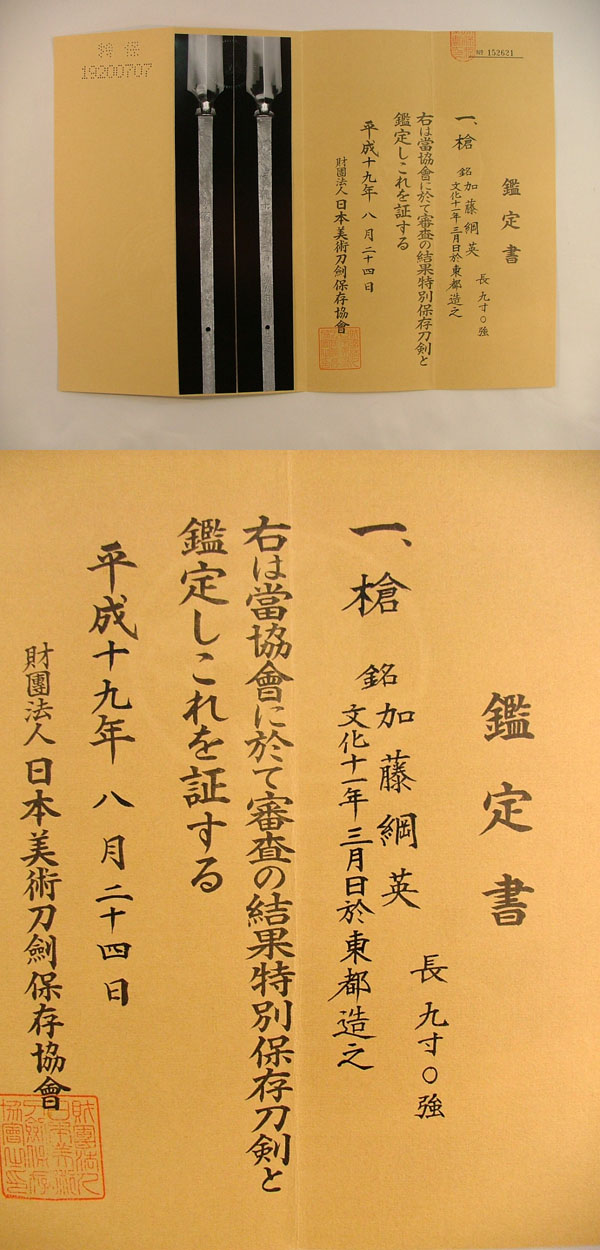 No 152621
鑑定書
一、槍
銘 加藤綱英
文化十一年三月日於東都造之
長九寸〇強
右は當協會に於て審査の結果特別保存刀剣と
鑑定しこれを証する
平成十九年 八月二十四日
財團法人日本美術刀劍保存協會
特保
19200707
鑑定書
一、槍
銘 加藤綱英
文化十一年三月日於東都造之
長九寸〇強
右は當協會に於て審査の結果特別保存刀剣と
鑑定しこれを証する
平成十九年 八月二十四日
財團法人日本美術刀劍保存協會